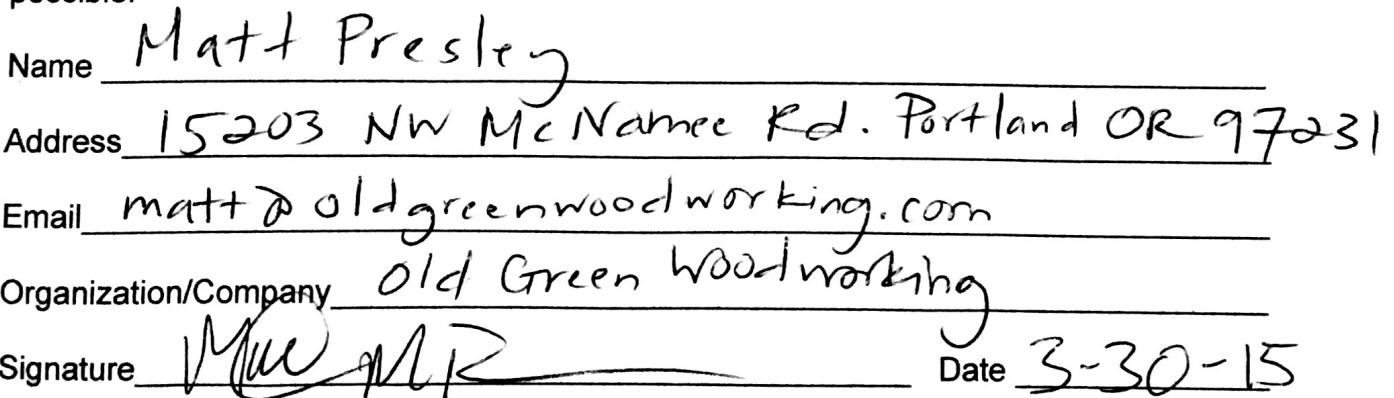 Name Matt Presley
Address 15203 NW McNamee Rd. Portland OR 97231
Email matt@oldgreenwoodworking.com
Organization/Company Old Green Woodworking
Signature Date 3-30-15